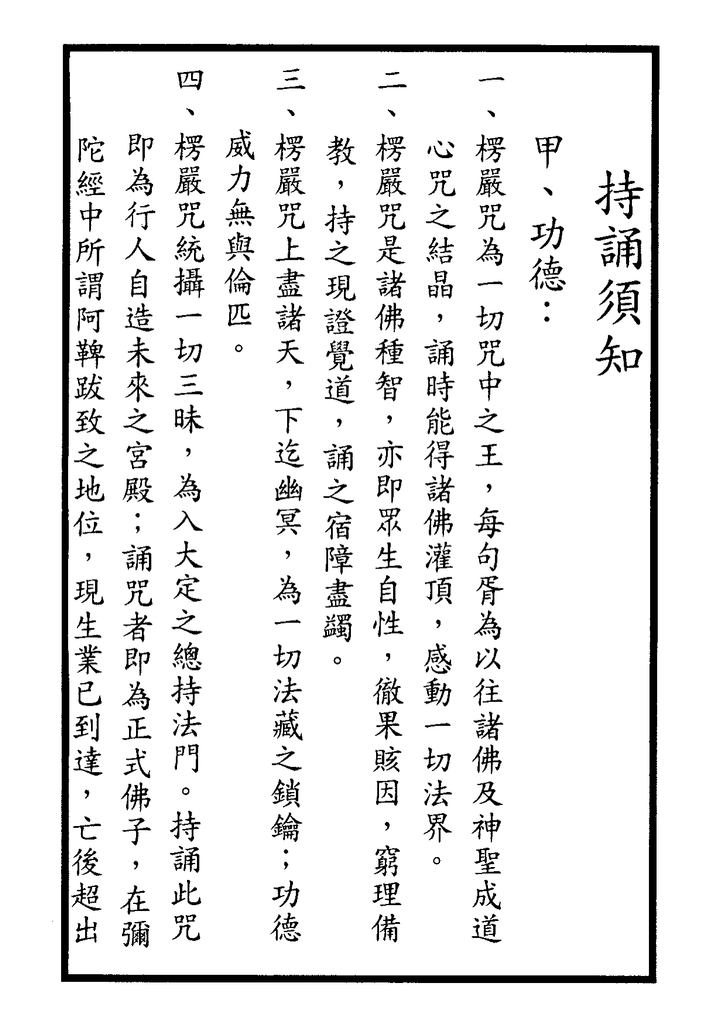 持誦須知
甲、功德：
一、楞嚴咒為一切咒中之王，每句胥為以往諸佛及神聖成道
心咒之結晶，誦時能得諸佛灌頂，感動一切法界。
二、楞嚴咒是諸佛種智，亦即眾生自性，徹果賅因，窮理備
教，持之現證覺道，誦之宿障盡蠲。
三、楞嚴咒上盡諸天，下迄幽冥，為一切法藏之鎖鑰；功德
威力無與倫匹。
四、楞嚴咒統攝一切三昧，為入大定之總持法門。持誦此咒
即為行人自造未來之宮殿；誦咒者即為正式佛子，在彌
陀經中所謂阿鞞跋致之地位，現生業已到達，亡後超出